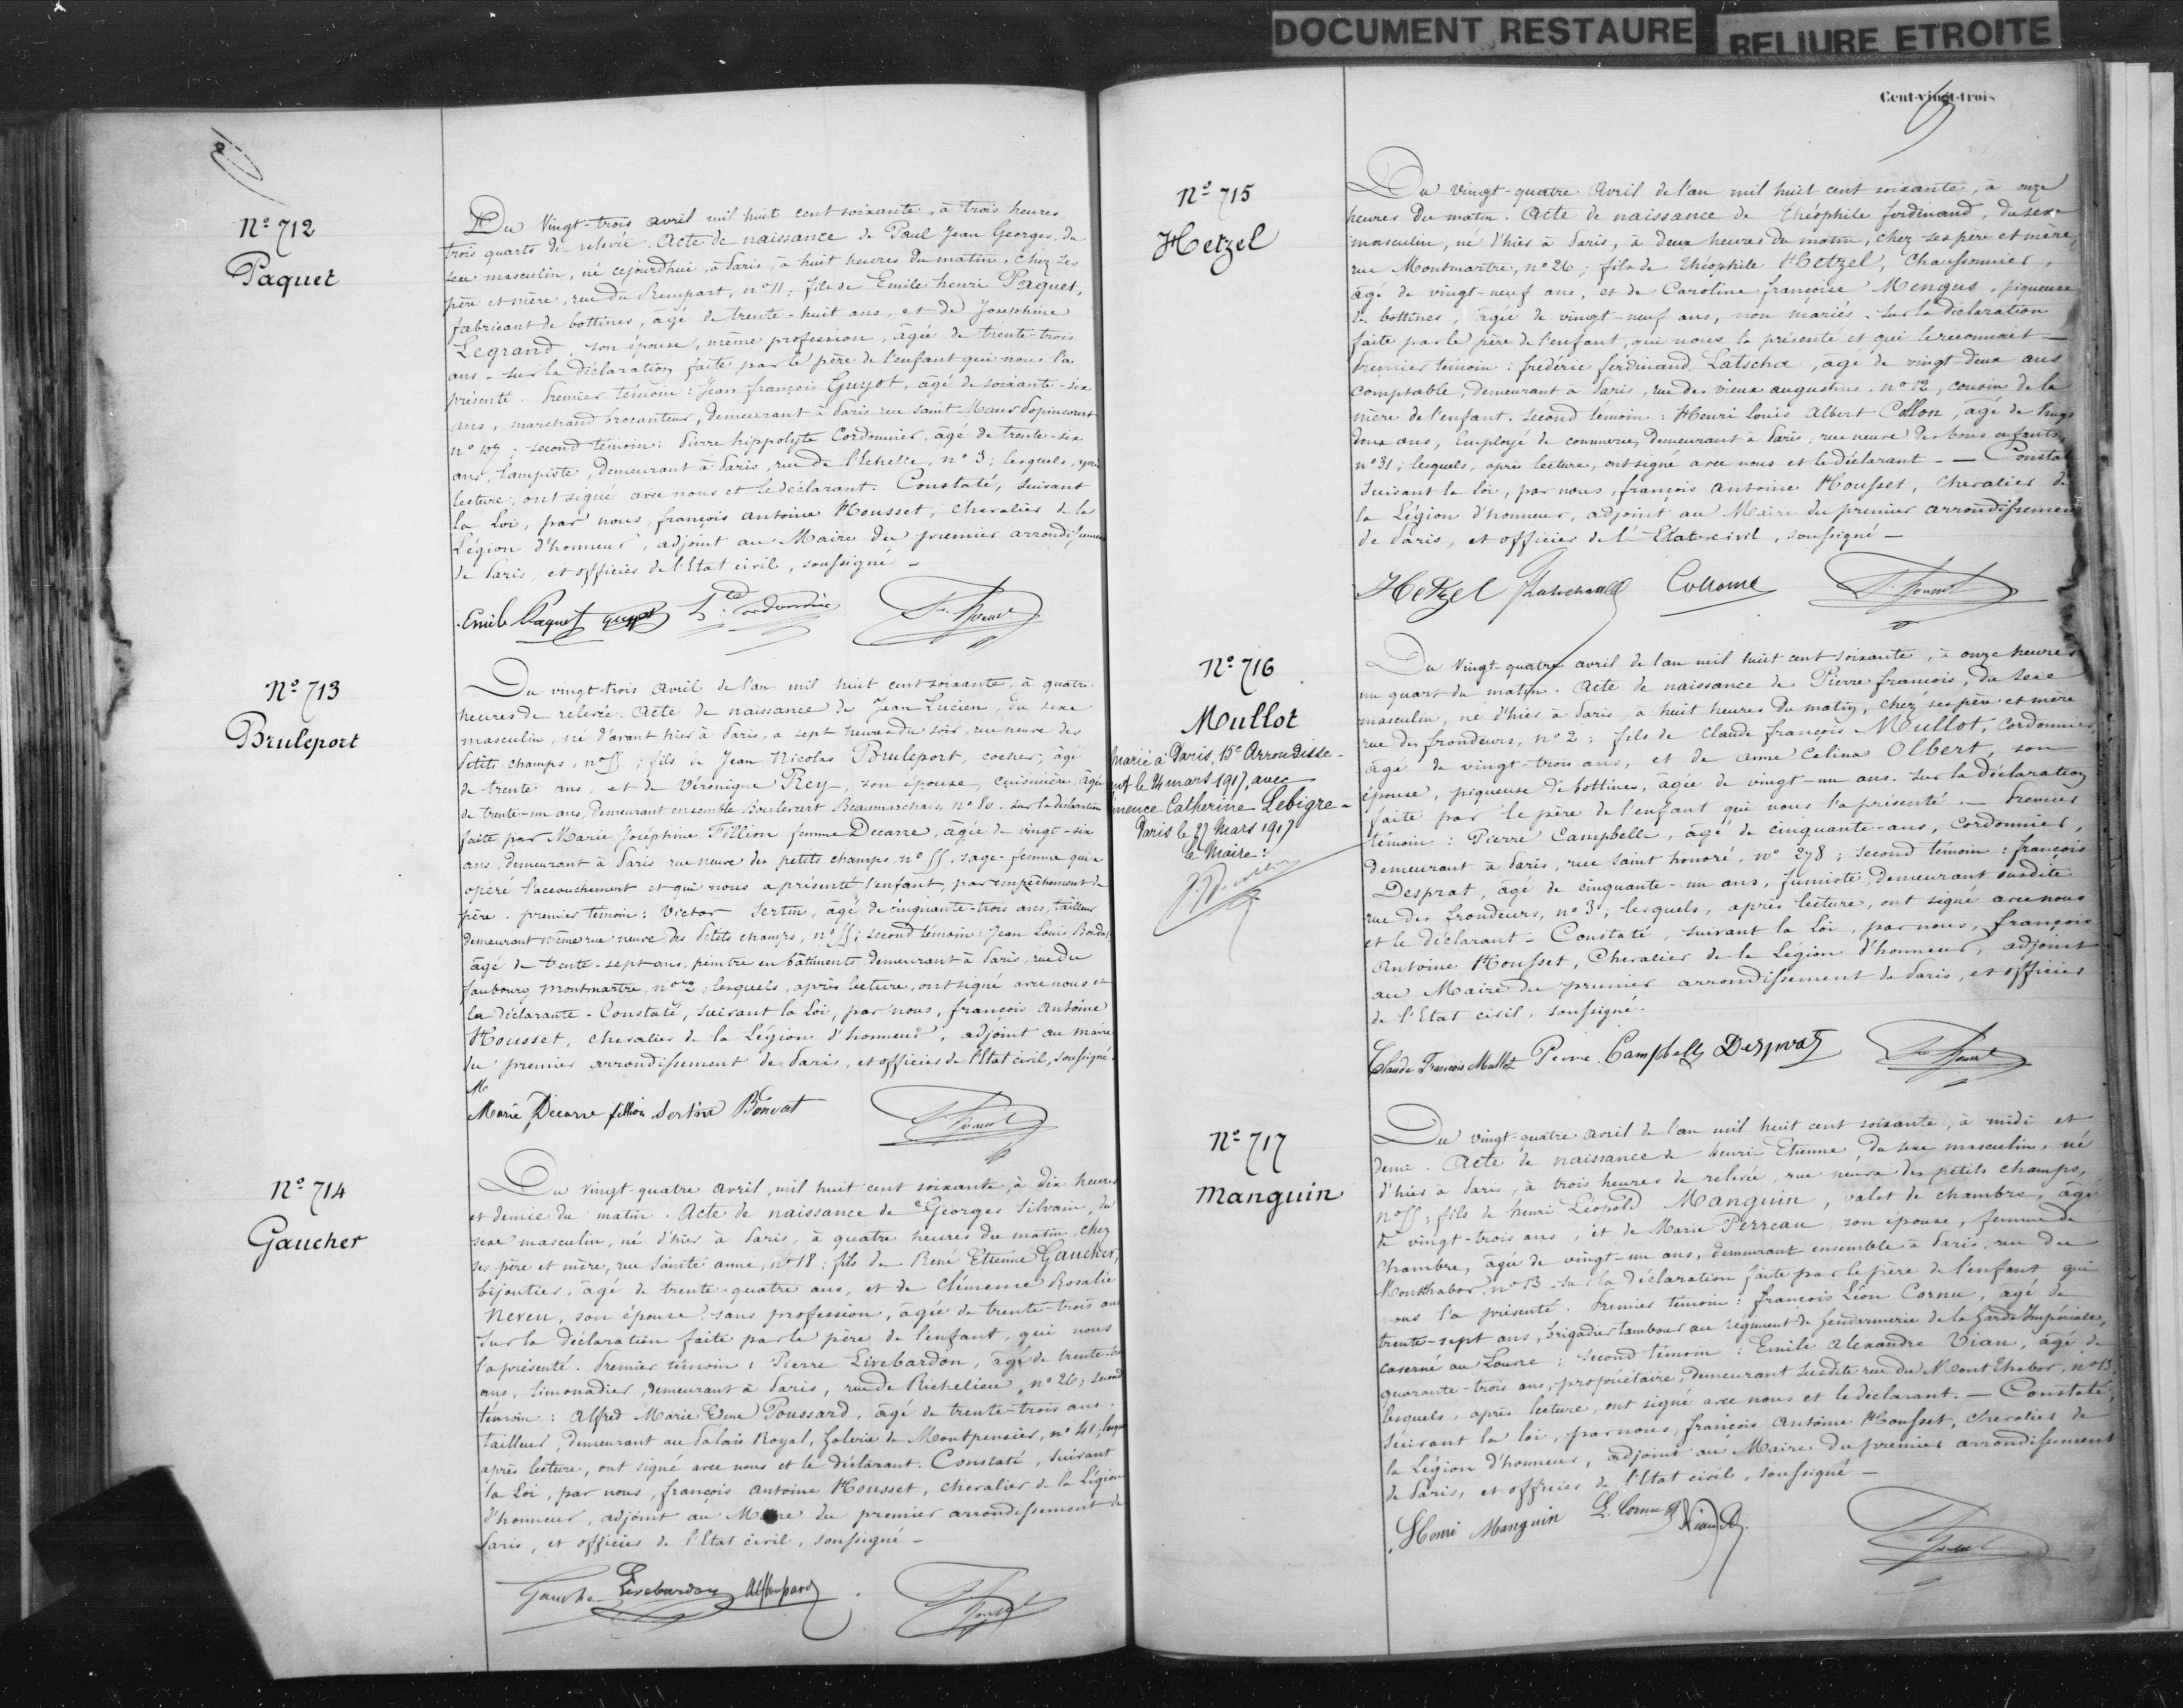 DOCUMENT RESTAURE
RELIURE ETROITE
Nº 712
Paquet
Du Vingt-trois avril mil huit cent soixante, à trois heures
trois quarts de relevée. Acte de naissance de Paul Jean Georges, du
sexe masculin, né cejourdhui, à Paris, à huit heures du matin, chez ses
père et mère, rue du Rempart, nº 11; fils de Emile henri Paquet,
fabricant de bottines, âgé de trente-huit ans, et de Joséphine
Legrand, son épouse, même profession, âgée de trente-trois
ans - sur la déclaration faite par le père de l'enfant qui nous l'a
présenté. Premier témoin: Jean françois Guyot, âgé de soixante-six
ans, marchand brocanteur, demeurant à Paris rue Saint-Maur Popincourt
nº 107; second témoin: Pierre hippolyte Cordonnier, âgé de trente-six
ans, lampiste, demeurant à Paris, rue de l'Echelle, nº 3; lesquels, après
lecture, ont signé avec nous et le déclarant. Constaté, suivant
la Loi, par nous, françois antoine Housset, chevalier de la
Légion d'honneur, adjoint au Maire du premier arrondissement
de Paris, et officier de l'Etat civil, soussigné -
Emile Paquet Guyot Cordonnier
Nº 713
Bruleport
Du vingt-trois avril de l'an mil huit cent soixante, à quatre
heures de relevée. Acte de naissance de Jean Lucien, du sexe
masculin, né d'avant hier à Paris, à sept heures du soir, rue neuve des
Petits champs, nº 55; fils de Jean Nicolas Bruleport, cocher, âgé
de trente ans, et de Véronique Rey, son épouse, cuisinière, âgée
de trente-un ans, demeurant ensemble Boulevart Beaumarchais, nº 80. sur la déclaration
faite par Marie Joséphine Fillion femme Decarre, âgée de vingt-six
ans, demeurant à Paris rue neuve des petits champs nº 55, sage-femme qui a
opéré l'accouchement et qui nous a présenté l'enfant, par empêchement du
père. premier témoin: Victor Sertin, âgé de cinquante-trois ans, tailleur
demeurant même rue neuve des Petits champs, nº 55; second témoin: Jean Louis
âgé de trente-sept ans, peintre en bâtiments demeurant à Paris, rue du
faubourg Montmartre, nº 72; lesquels, après lecture, ont signé avec nous et
la déclarante - Constaté, suivant la Loi, par nous, françois antoine
Housset, chevalier de la Légion d'honneur, adjoint au maire
du premier arrondissement de Paris, et officier de l'Etat civil, soussigné.
M
Marie Decarre fillion
Nº 714
Gaucher
Du vingt quatre avril, mil huit cent soixante, à dix heures
et demie du matin. Acte de naissance de Georges Silvain, du
sexe masculin, né d'hier à Paris, à quatre heures du matin, chez
ses père et mère, rue Sainte anne, nº 18; fils de René Etienne Gaucher,
bijoutier, âgé de trente-quatre ans, et de Clémence Rosalie
Neveu, son épouse, sans profession, âgée de trente-trois ans
sur la déclaration faite par le père de l'enfant, qui nous
l'a présenté. Premier témoin: Pierre Livebardon, âgé de trente-
ans, limonadier, demeurant à Paris, rue de Richelieu, nº 26; second
témoin: Alfred Marie Edme Poussard, âgé de trente-trois ans,
tailleur, demeurant au Palais Royal, Galerie de Montpensier, nº 41, lesquels
après lecture, ont signé avec nous et le déclarant. Constaté, suivant
la Loi, par nous, françois antoine Housset, chevalier de la Légion
d'honneur, adjoint au Maire du premier arrondissement de
Paris, et officier de l'Etat civil, soussigné -
Gaucher Livebardon
Cent-vingt-trois
Nº 715
Hetzel
Du Vingt-quatre Avril de l'an mil huit cent soixante, à onze
heures du matin. Acte de naissance de théophile ferdinand, du sexe
masculin, né d'hier à Paris, à deux heures du matin, chez ses père et mère,
rue Montmartre, nº 26; fils de théophile Hetzel, Chaussonnier,
âgé de vingt-neuf ans, et de Caroline françoise Mengus, piqueuse
de bottines, âgée de vingt-neuf ans, non mariés. sur la déclaration
faite par le père de l'enfant, qui nous l'a présenté et qui le reconnait -
Premier témoin: frédéric ferdinand Latscha, âgé de vingt deux ans
comptable, demeurant à Paris, rue des vieux augustins, nº 12, cousin de la
mère de l'enfant. second témoin: Henri Louis Albert Collon, âgé de vingt
deux ans, Employé de commerce, demeurant à Paris, rue neuve des bons enfants,
nº 31; lesquels, après lecture, ont signé avec nous et le déclarant - Constaté
suivant la Loi, par nous, françois antoine Housset, Chevalier de
la Légion d'honneur, adjoint au Maire du premier arrondissement
de Paris, et officier de l'Etat civil, soussigné -
Hetzel
Nº 716
Mullot
Marié à Paris, 15e Arrondisse-
ent le 24 mars 1917, avec
mence Catherine Lebigre -
Paris le 27 Mars 1917
le Maire:
Du Vingt-quatre avril de l'an mil huit cent soixante, à onze heures
un quart du matin. Acte de naissance de Pierre françois, du sexe
masculin, né d'hier à Paris, à huit heures du matin, chez ses père et mère
rue des frondeurs, nº 2; fils de Claude françois Mullot, cordonnier,
âgé de vingt-trois ans, et de anne Celina Olbert, son
épouse, piqueuse de bottines, âgée de vingt-un ans. sur la déclaration
faite par le père de l'enfant qui nous l'a présenté. - Premier
témoin: Pierre Campbell, âgé de cinquante-ans, cordonnier,
demeurant à Paris, rue Saint honoré, nº 278; second témoin: françois
Desprat, âgé de cinquante-un ans, fumiste, demeurant susdite
rue des frondeurs, nº 3; lesquels, après lecture, ont signé avec nous
et le déclarant - Constaté, suivant la Loi, par nous, françois
Antoine Housset, Chevalier de la Légion d'honneur, adjoint
au Maire du premier arrondissement de Paris, et officier
de l'Etat civil, soussigné.
Claude François Mullot Pierre Campbell Desprat
Nº 717
Manguin
Du vingt-quatre avril de l'an mil huit cent soixante, à midi et
demi. Acte de naissance de henri Etienne, du sexe masculin, né
d'hier à Paris, à trois heures de relevée, rue neuve des petits champs,
nº 55; fils de henri Léopold Manguin, valet de chambre, âgé
de vingt-trois ans, et de Marie Perreau, son épouse, femme de
Chambre, âgée de vingt-un ans, demeurant ensemble à Paris, rue du
Montthabor, nº 13 - sur la déclaration faite par le père de l'enfant qui
nous l'a présenté. Premier témoin: françois Léon Cornu, âgé de
trente-sept ans, brigadier tambour au régiment de gendarmerie de la Garde Impériale,
caserné au Louvre; second témoin: Emile alexandre Vian, âgé de
quarante-trois ans, propriétaire, demeurant susdite rue du Mont Thabor, nº 13
lesquels, après lecture, ont signé avec nous et le déclarant. - Constaté,
suivant la loi, par nous, françois Antoine Housset, chevalier de
la Légion d'honneur, adjoint au Maire du premier arrondissement
de Paris, et officier de l'Etat civil, soussigné -
Henri Manguin L. Cornu Vian